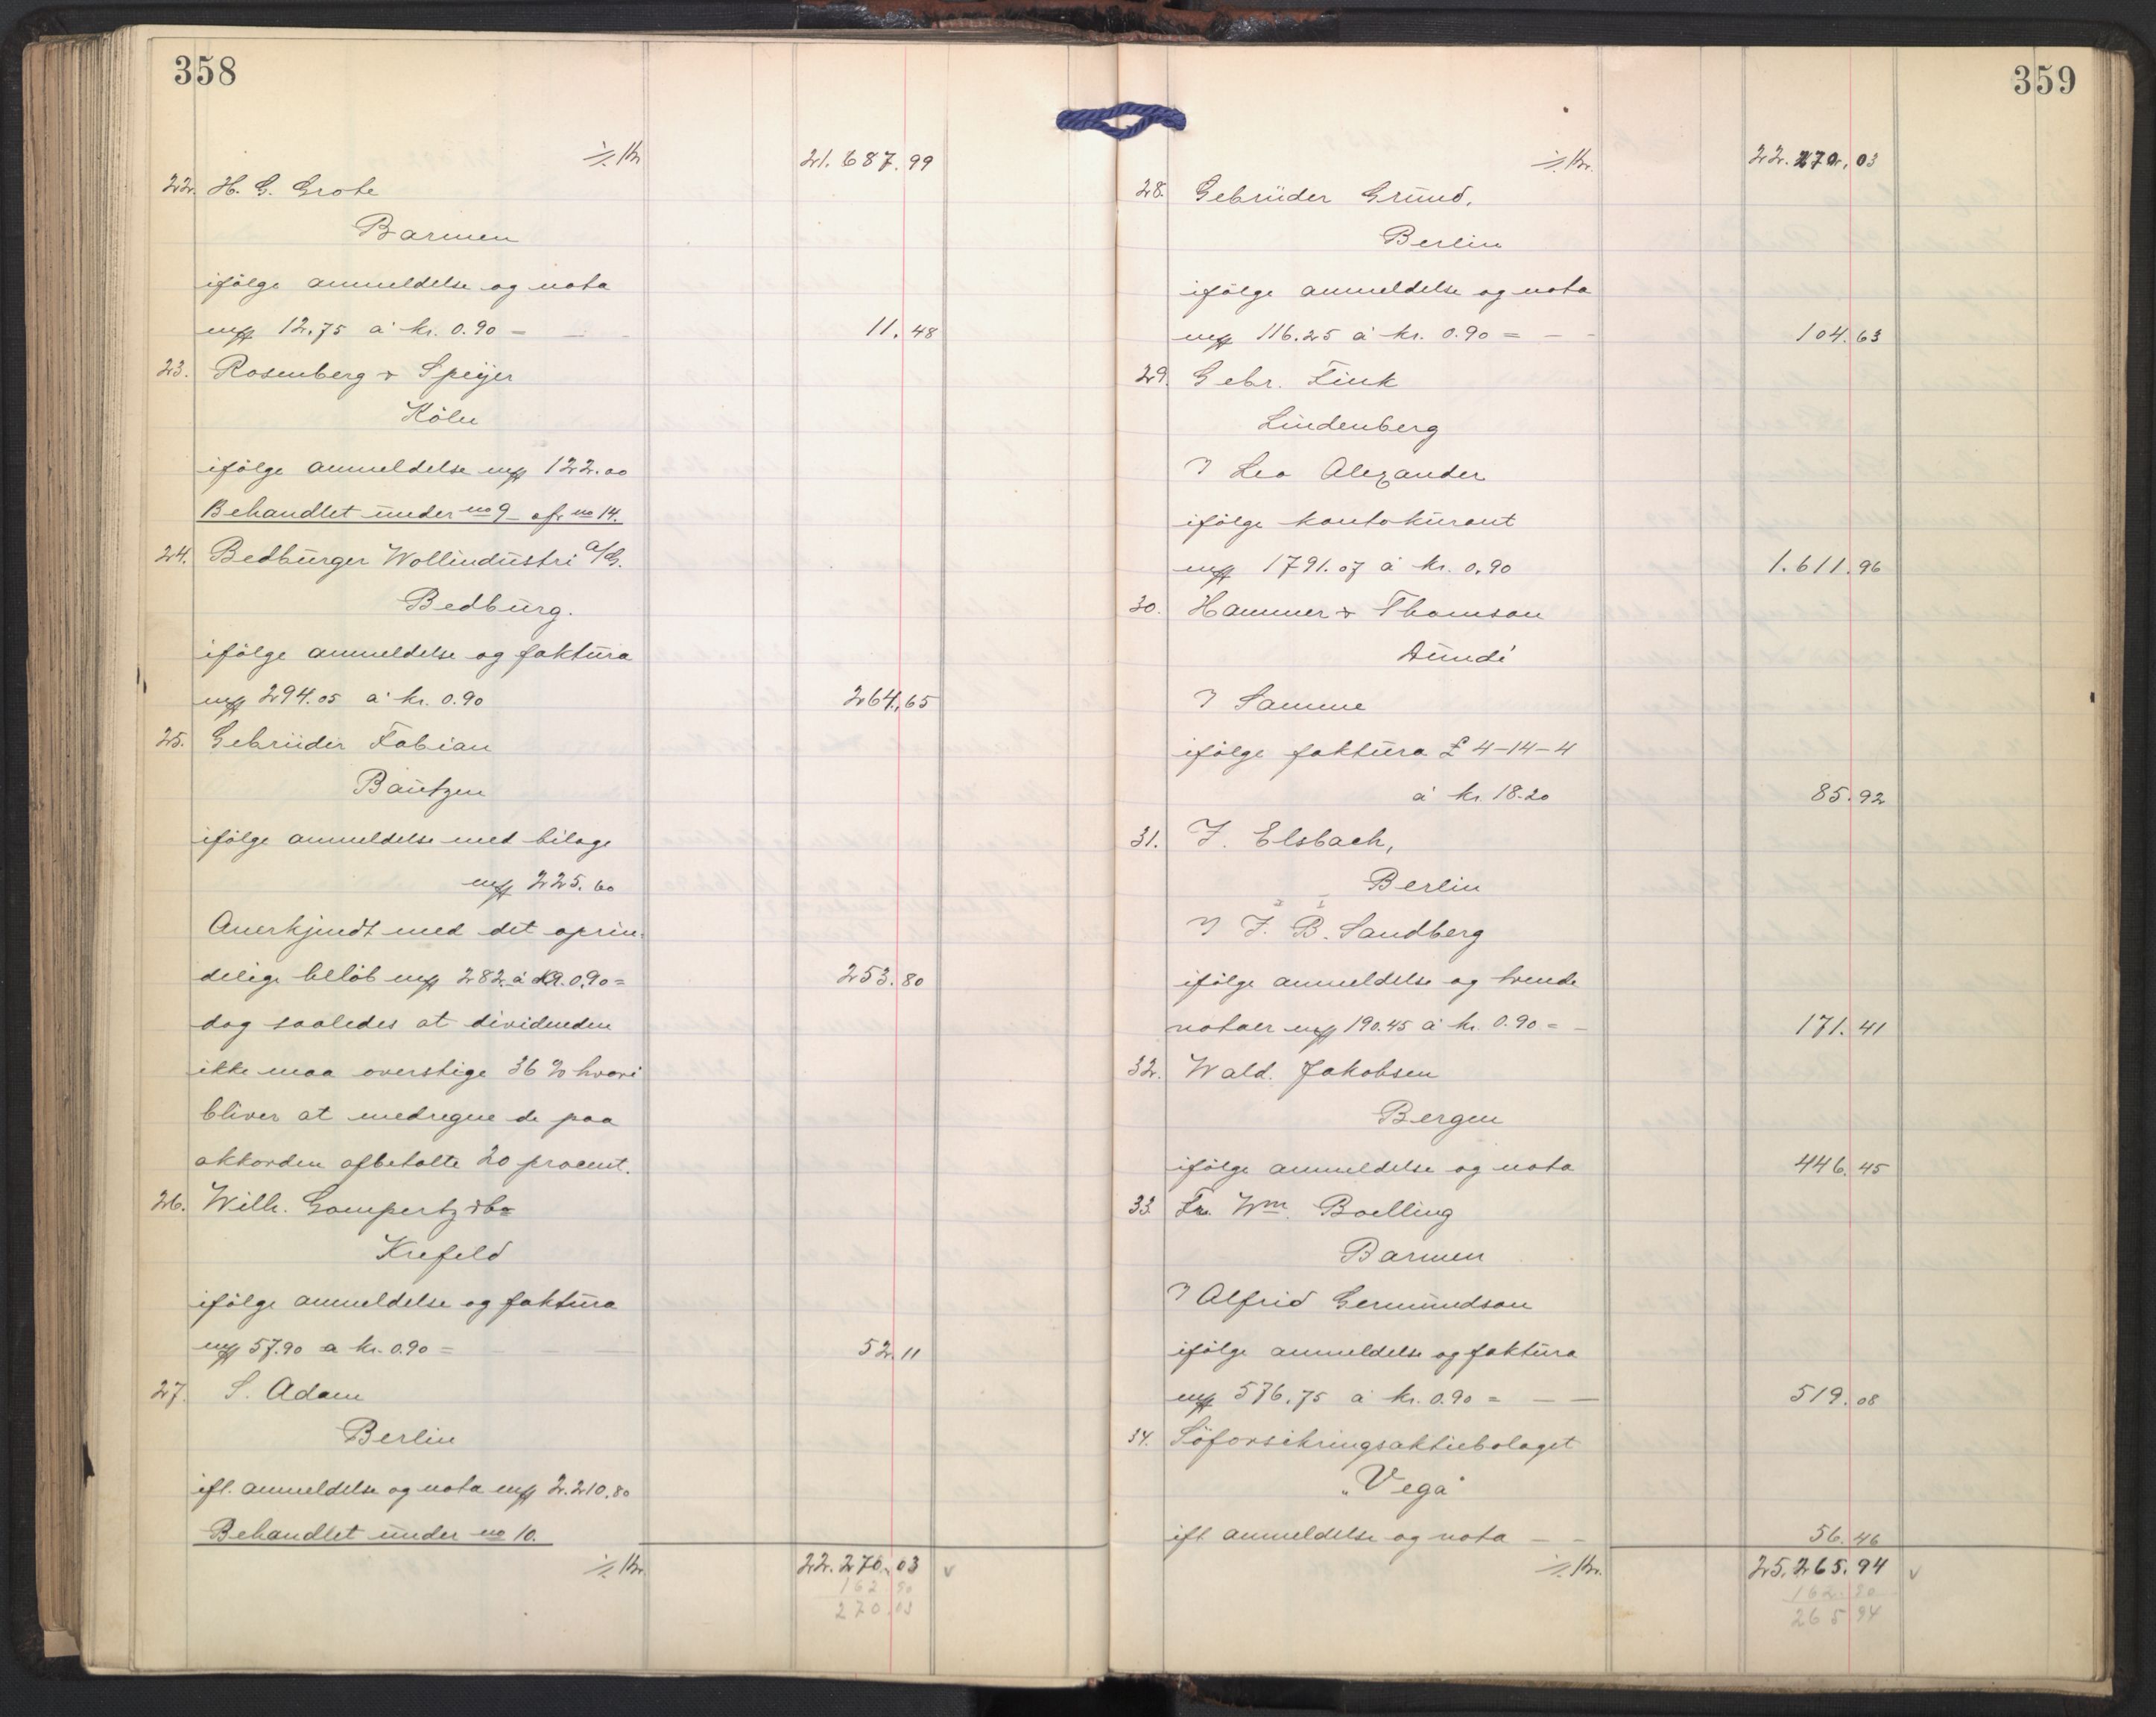 358
÷ Kr. 21.687.99
22. H. G. Grote
Barmen
ifölge anmeldelse og nota
mk 12.75 à kr. 0.90 = — 11.48
23. Rosenberg & Speijer
Köln
ifölge anmeldelse mk 122.00
Behandlet under no 9 - cfr no 14.
24. Bedburger Wollindustri a/G.
Bedburg.
ifölge anmeldelse og faktura
mk 294.05 à kr. 0.90 264.65
25. Gebrüder Fabian
Bautzen
ifölge anmeldelse med bilage
mk 225.60
Anerkjendt med det oprin-
delige belöb mk 282 à KR. 0.90 = 253.80
dog saaledes at dividenden
ikke maa overstige 36 % hvori
bliver at medregne de paa
akkorden afbetalte 20 procent.
26. Wilh. Gompertz & Co
Krefeld
ifölge anmeldelse og faktura
mk 57.90 a kr. 0.90 = — — — 52.11
27. S. Adam
Berlin
ifl. anmeldelse og nota mk 2.210.80
Behandlet under no 10.
÷ Kr. 22.270.03 v
162 90
270.03
359
÷ Kr. 22.270.03
28. Gebrüder Grund,
Berlin
ifölge anmeldelse og nota
mk 116.25 à kr. 0.90 = — - 104.63
29. Gebr. Fink
Lindenberg
v/ Leo Alexander
ifölge kontokurant
mk 1791.07 à kr. 0.90 1.611.96
30. Hammer & Thomson
Dundé
v/ Samme
ifölge faktura £ 4-14-4
à kr. 18.20 85.92
31. J. Elsbach,
Berlin
v/ J. B. Sandberg
ifölge anmeldelse og tvende
notaer mk 190.45 à kr. 0.90 = - 171.41
32. Wald. Jakobsen
Bergen
ifölge anmeldelse og nota 446.45
33. Fr. Wm. Boelling
Barmen
v/ Alfrid Germundson
ifölge anmeldelse og faktura
mk 576.75 à kr. 0.90 = — — 519.08
34. Söforsikringsaktiebolaget
„Vega"
ifl. anmeldelse og nota — - 56.46
÷ Kr. 25.265.94 v
162.90
265 94